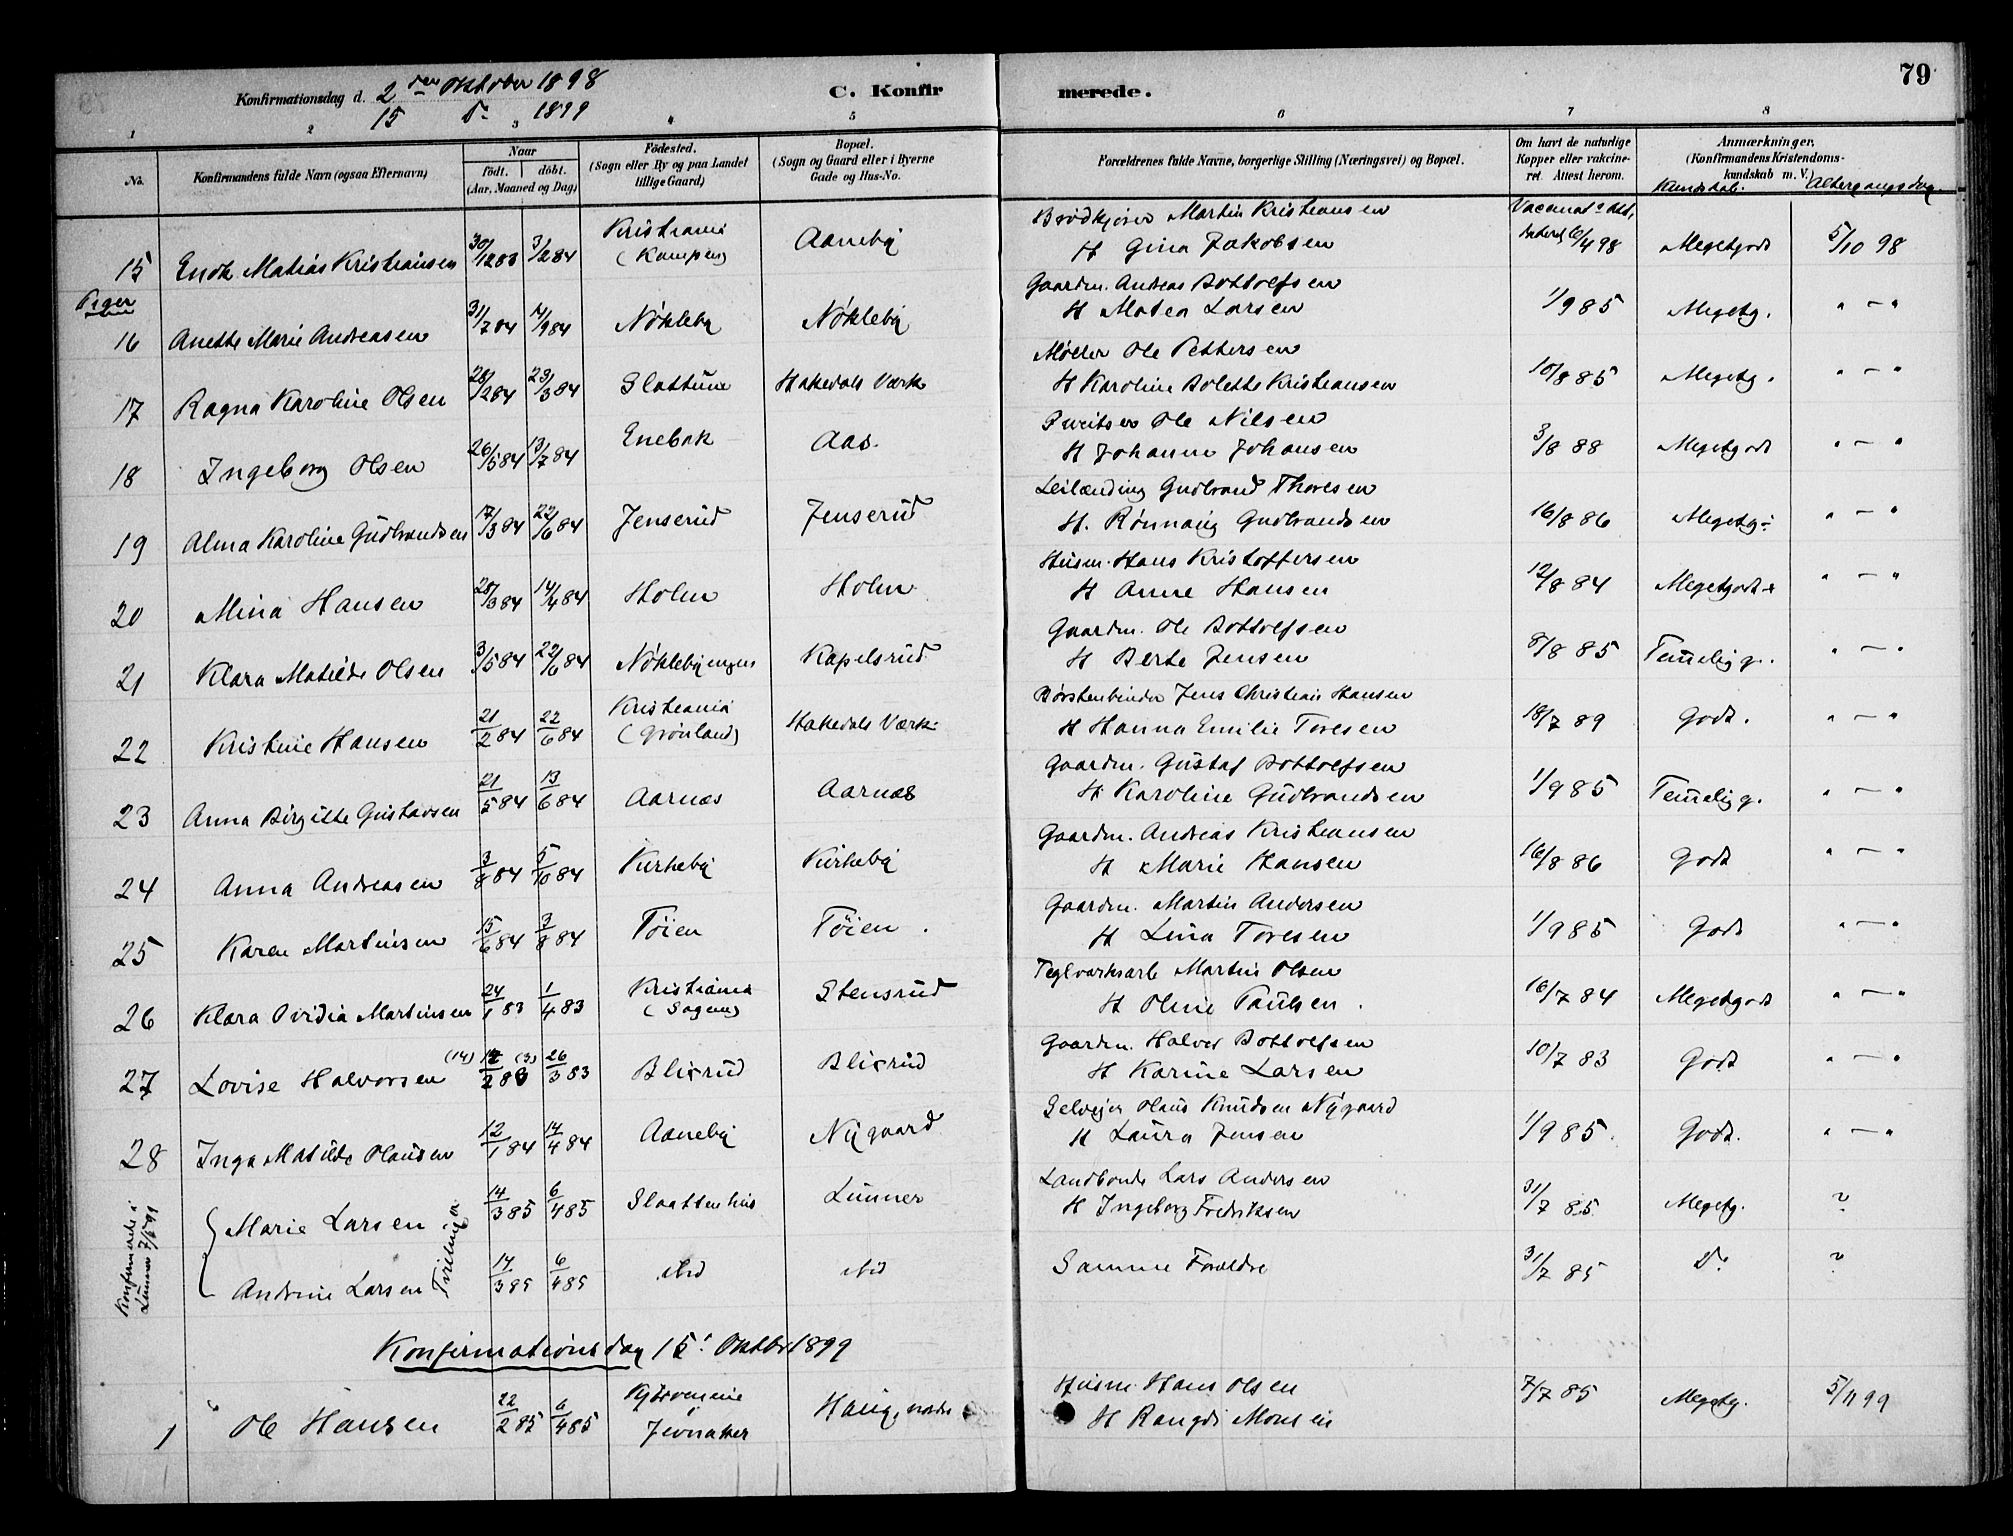 79
Konfirmationsdag d. 2den Oktober 1898
15 Do 1899
C. Konfirmerede.
1 2 3 4 5 6 7 8
No.
Konfirmandens fulde Navn (ogsaa Efternavn)
Naar
født. døbt.
(Aar, Maaned og Dag)
Fødested.
(Sogn eller By og paa Landet
tillige Gaard)
Bopæl.
(Sogn og Gaard eller i Byerne
Gade og Hus-No.
Forældrenes fulde Navne, borgerlige Stilling (Næringsvei) og Bopæl.
Om havt de naturlige
Kopper eller vakcine-
ret. Attest herom.
Anmærkninger.
(Konfirmandens Kristendoms-
kundskab m. V.)
Kundskab. Altergangsdag.
15 Enok Matias Kristiansen 30/12 83 3/2 84 Kristiania (Kampen) Aaneby
Brødkjører Martin Kristiansen
H Gina Jakobsen
6/4 98 Megetgodt 5/10 98
Piger
16 Anette Marie Andreasen 31/7 84 14/9 84 Nøkleby Nøkleby
Gaardm. Andreas Bottolfsen
H Matea Larsen
1/9 85 Megetg. " — "
17 Ragna Karoline Olsen 28/2 84 23/3 84 Slattum Hakedals Værk
Møller Ole Pettersen
H Karoline Bolette Kristiansen
10/8 85 Megetg. " — "
18 Ingeborg Olsen 26/5 84 13/7 84 Enebak Aas.
Ole Nilsen
H Johanne Johansen
3/8 88 Megetgodt " — "
19 Alma Karoline Gudbrandsen 17/3 84 22/6 84 Jenserud Jenserud
Leilænding Gudbrand Thoresen
H. Rønnaug Gudbrandsen
16/8 86 Megetg÷ " — "
20 Mina Hansen 28/3 84 14/4 84 Holm Holm
Husm. Hans Kristoffersen
H Anne Hansen
12/8 84 Megetgodt " — "
21 Klara Matilde Olsen 3/5 84 22/6 84 Nøklebyengen Kapelsrud
Gaardm. Ole Bottolfsen
H Berte Jensen
8/8 85 Temelig g. " — "
22 Kristine Hansen 21/2 84 22/6 84 Kristiania (Grønland) Hakedals Værk
Børstenbinder Jens Christian Hansen
H Hanna Emilie Toresen
18/7 89 Godt. " — "
23 Anna Birgitte Gustavsen 21/5 84 13/6 84 Aarnæs Aarnæs
Gaardm. Gustaf Bottolfsen
H Karoline Gudbrandsen
1/9 85 Temelig g. " — "
24 Anna Andreasen 3/8 84 5/10 84 Kirkeby Kirkeby
Gaardm. Andreas Kristiansen
H Marie Hansen
16/8 86 Godt " — "
25 Karen Martinsen 15/6 84 3/8 84 Tøien Tøien.
Gaardm. Martin Andersen
H Lina Toresen
1/9 85 Godt " — "
26 Klara Ovidia Martinsen 24/1 83 1/4 83 Kristiania (Sagene) Stensrud
Teglværksarb Martin Olsen
H Oline Paulsen.
16/7 84 Megetgodt " — "
27 Lovise Halvorsen (14) 14/2 83 (3) 26/3 83 Blisrud Blisrud
Gaardm. Halvor Bottolfsen
H Karine Larsen
10/7 83 Godt " — "
28 Inga Matilde Olausen 12/1 84 14/4 84 Aaneby Nygaard
Selveier Olaus Knudsen Nygaard
H Laura Jensen
1/9 85. Godt. " — "
Konfirmerede i
Lunner 7/5 99
Tvillinger
Marie Larsen 14/3 85 6/4 85 Slaattenhus Lunner
Landbonde Lars Andersen
H Ingeborg Fredriksen
31/7 85 Megetg. ?
Andrine Larsen 14/3 85 6/4 85 ibid ibid
Samme Forældre
31/7 85 Do ?
Konfirmationsdag 15. Oktbr 1899
1 Ole Hansen 22/2 85 6/4 85 Haug, nordre
Husm. Hans Olsen
H Rangdi Monsen
7/7 85 Megetg. 5/11 99